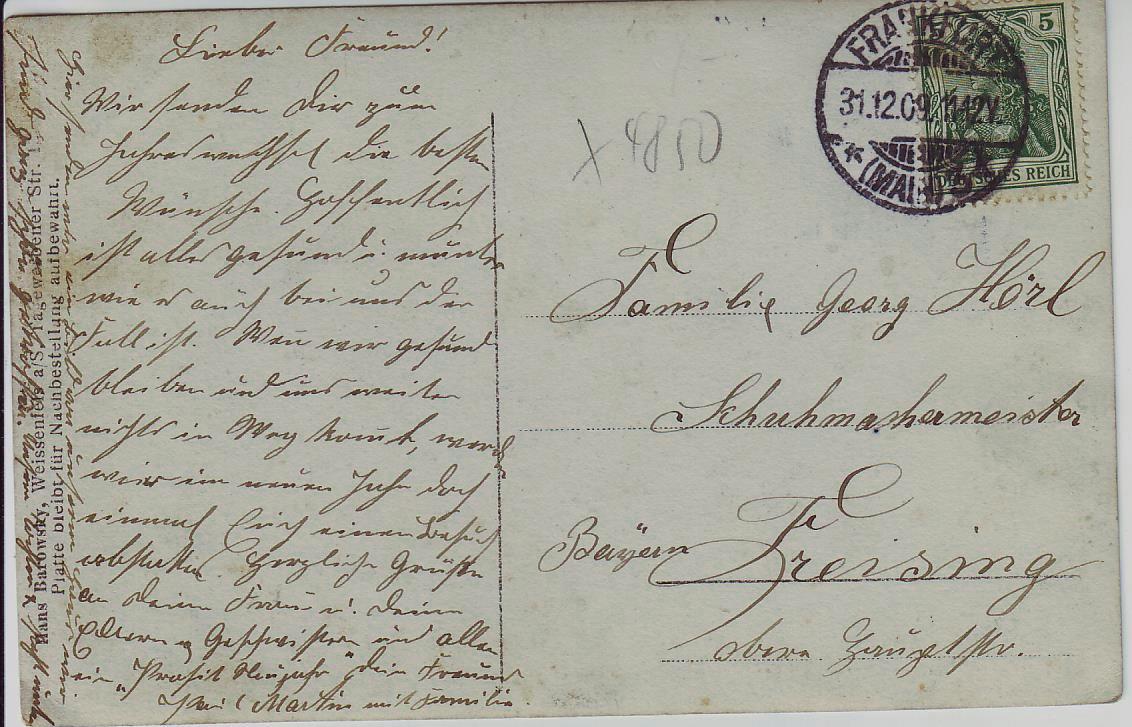 Lieber Freund!
Wir senden Dir zum
Jahreswechsel die besten
Wünsche. Hoffentlich
ist alles gesund u. munter
wie es auch bei uns der
Fall ist. Wen wir gesund
bleiben und uns weiter
nichts in Weg kommt, werden
wir im neuen Jahr doch
einmal Euch einen Besuch
abstatten. Herzliche Grüße
an Deine Frau u. Deine
Eltern u. Geschwistern und allen
ein "Prosit Neujahr" Dein Freund
Martin mit Familie.
Hans Barowsky, Weissenfels a/S. Tagewerbener Str. 1.
Platte bleibt für Nachbestellung aufbewahrt.
x 4850
FRANKFURT
31.12.09. 11-12V.
* (MAIN)
5
DEUTSCHES REICH
Familie Georg Hörl
Schuhmachermeister
Bayern Freising
obere Hauptstr.